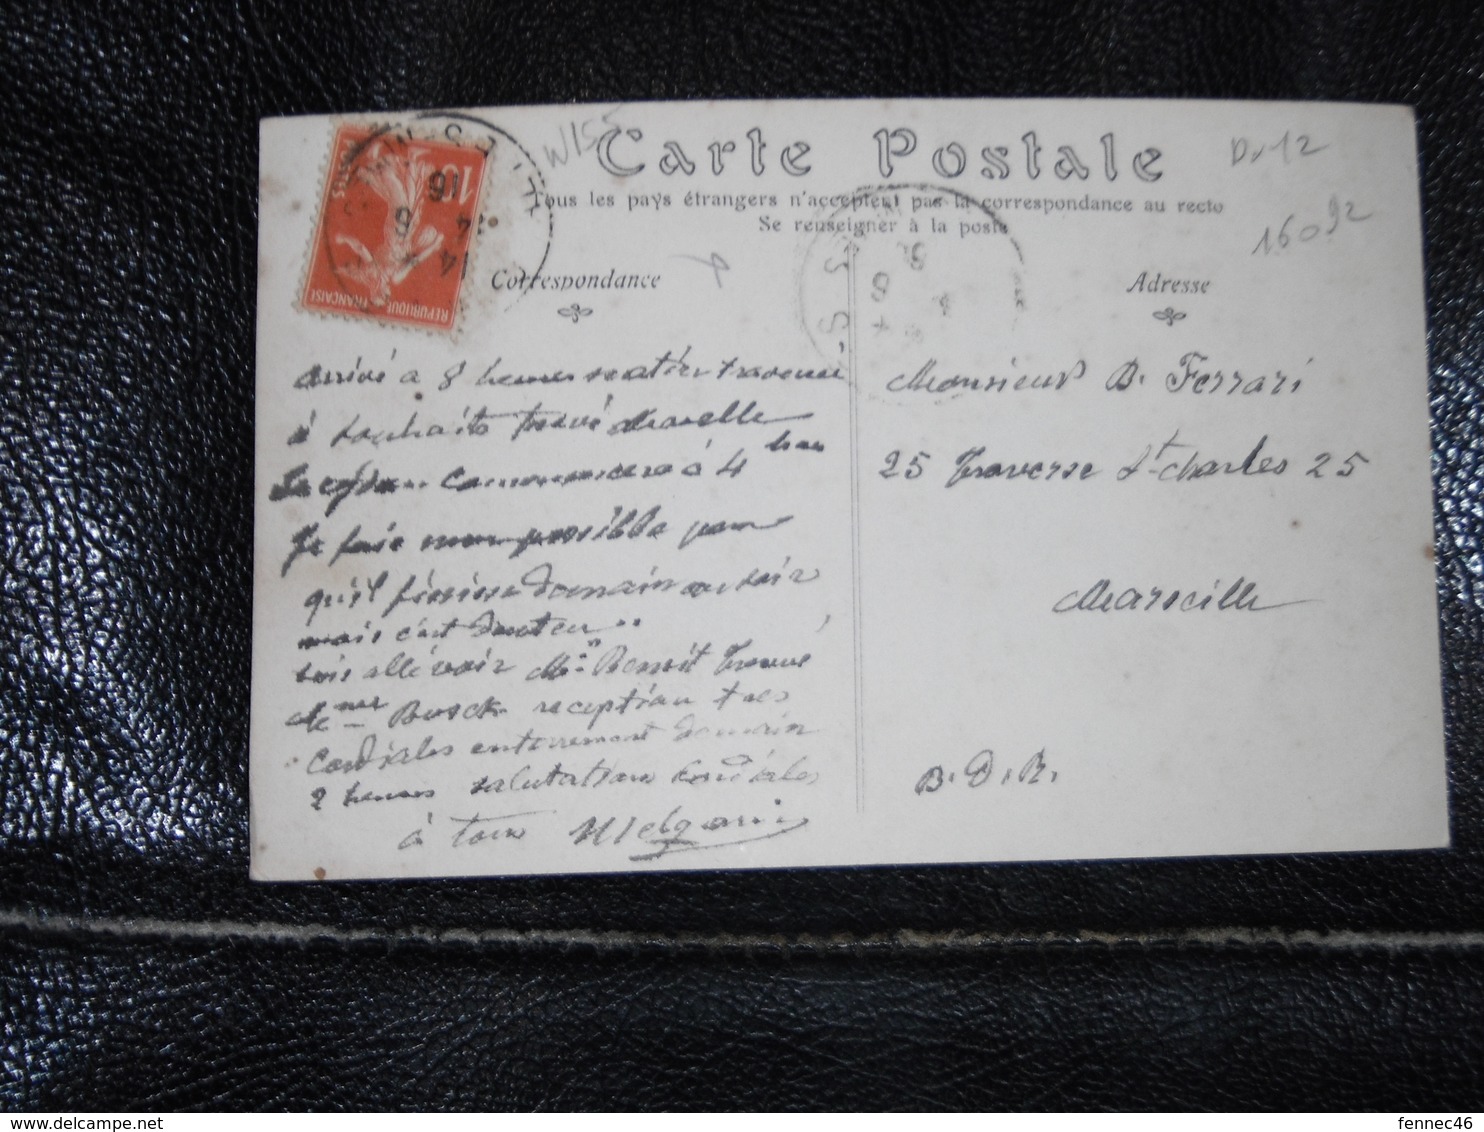 Carte Postale
Tous les pays étrangers n'acceptent pas la correspondance au recto
Se renseigner à la poste
W155
D.12
16092
10
POSTES
REPUBLIQUE FRANCAISE
16
14
6
14
Correspondance
Adresse
arrivé a 8 heures matin traversée
à souhaits trouvé
commencera à 4 heures
Je fais mon possible pour
qu'il finisse demain au soir
mais c'est douteux..
suis allé voir Mr Benoit trouvé
Mme Busck reception tres
cordiales enterrement demain
2 heures salutations cordiales
à tous
Monsieur B. Ferrari
25 Traverse St charles 25
Marseille
B. D. R.
fennec46